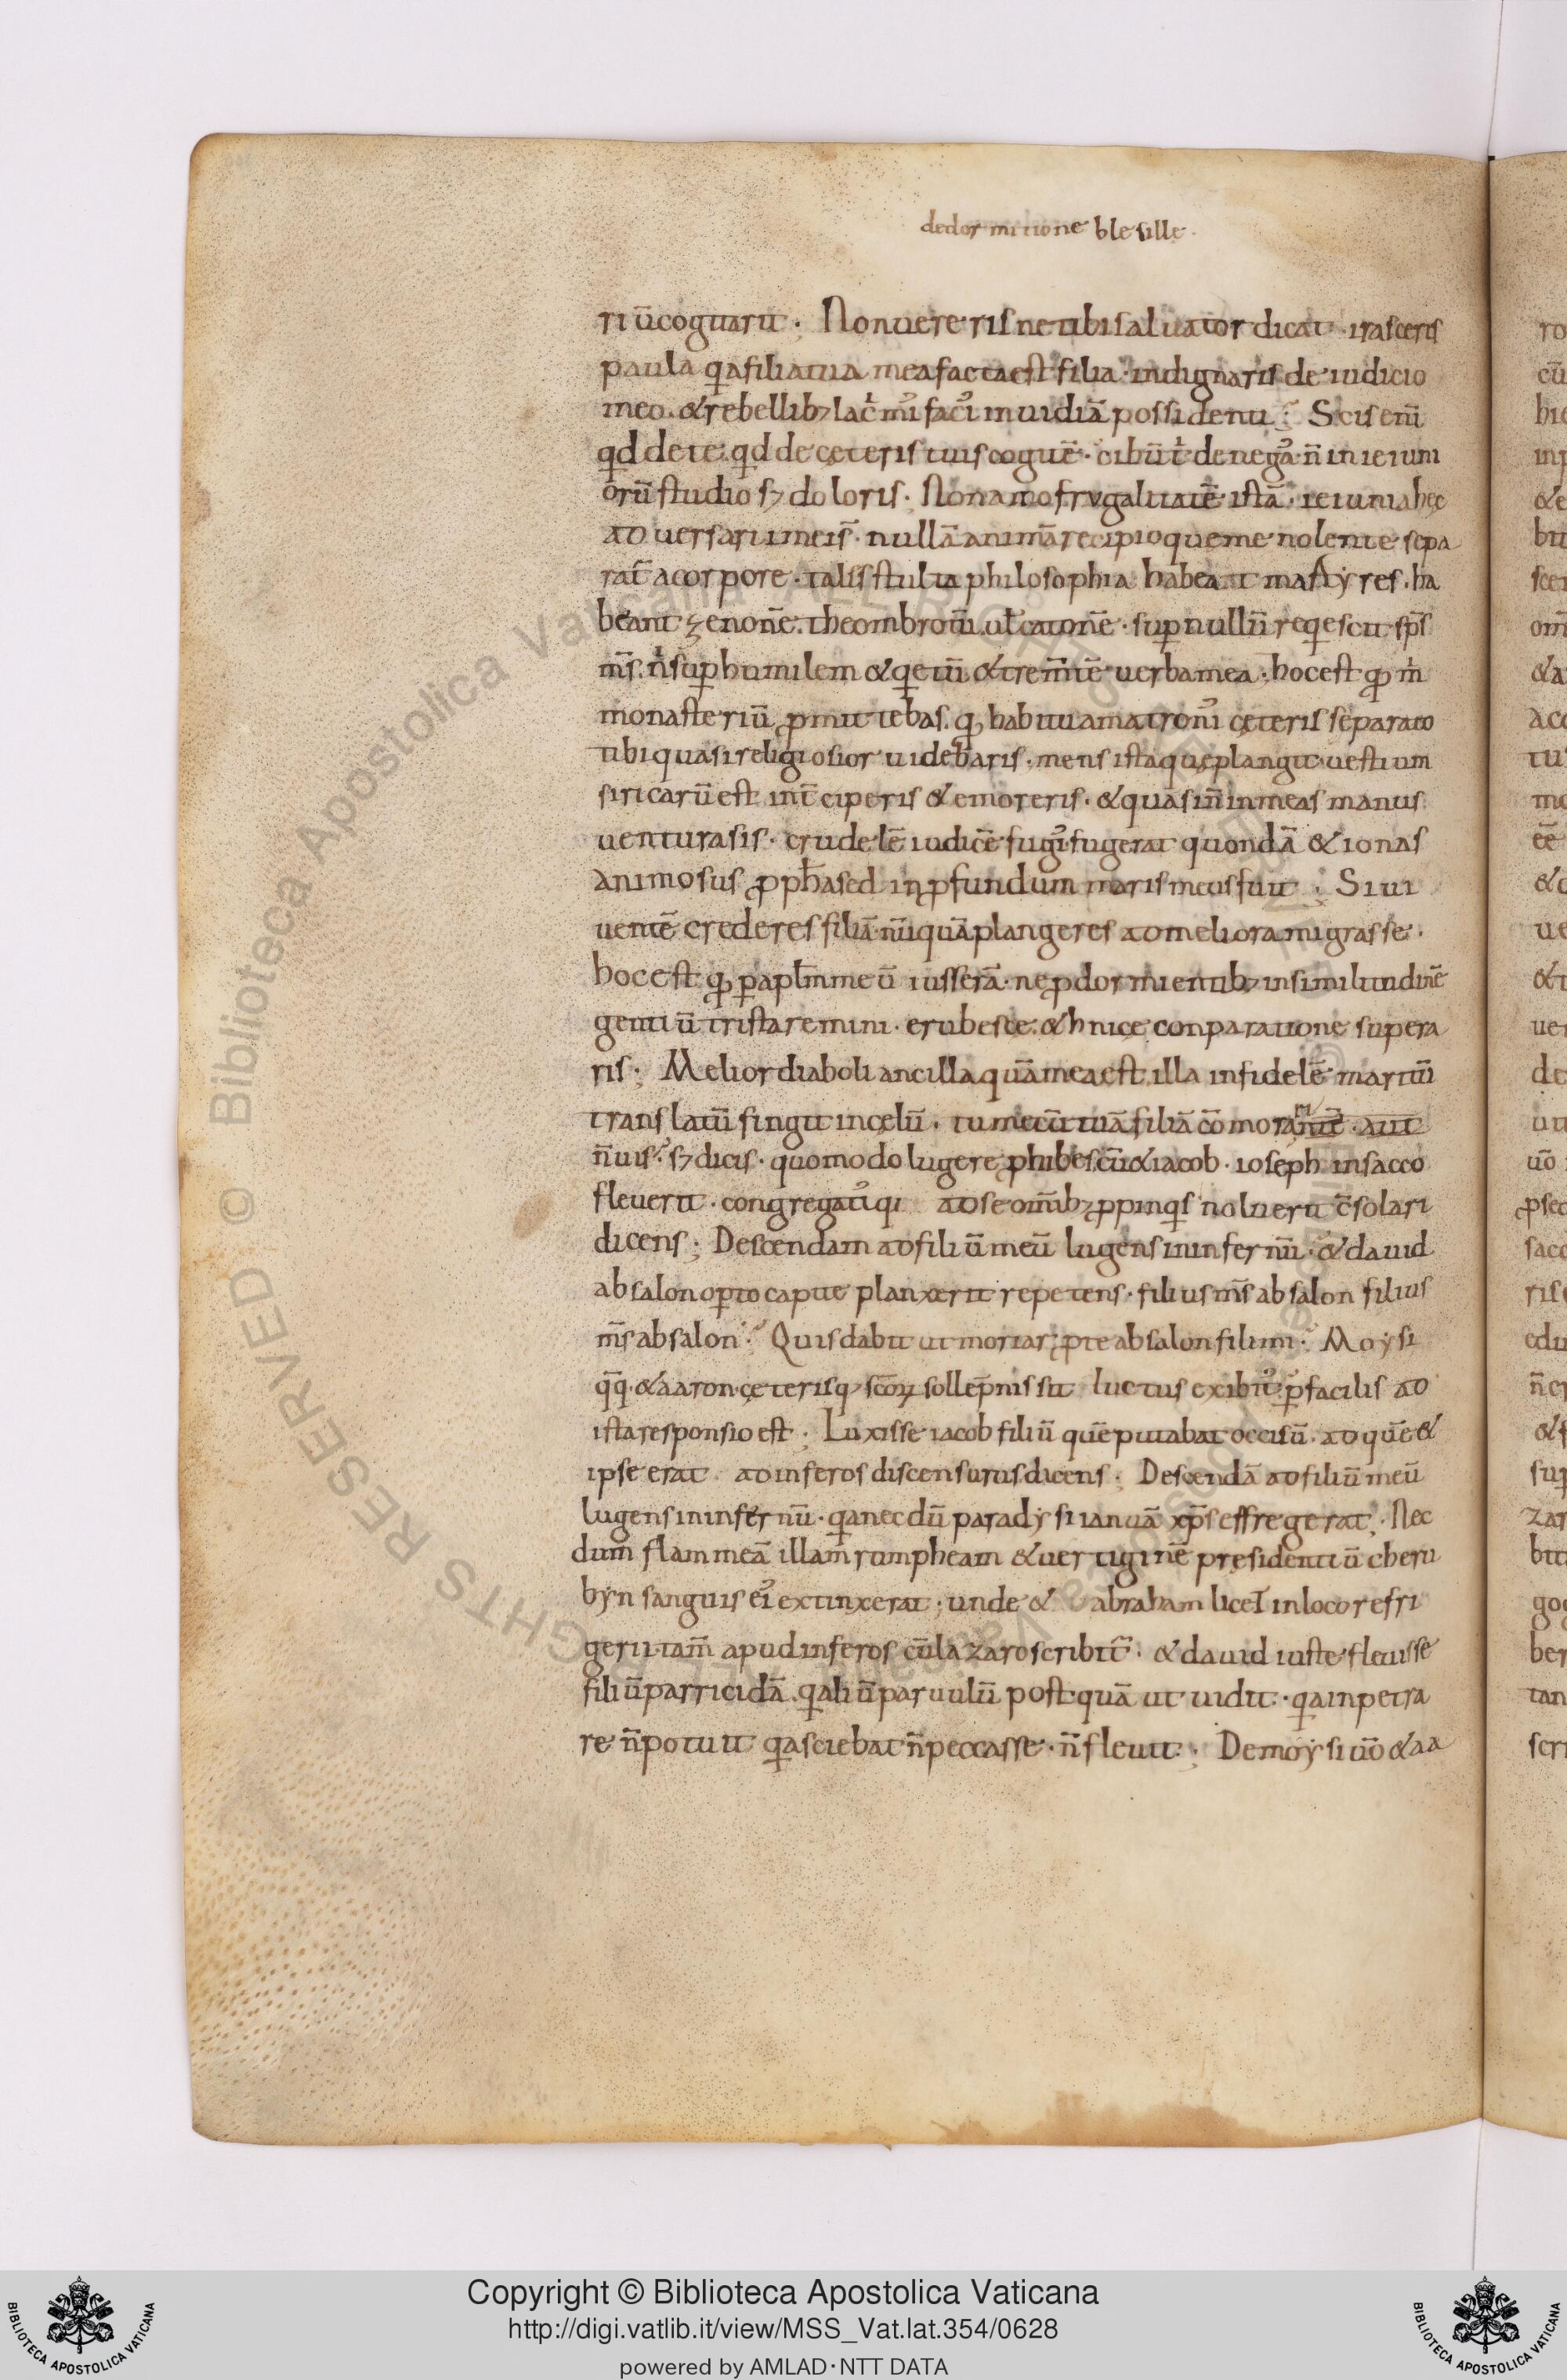 dedormitione blesille.
ri ū cogitarit · Non vereris ne tibi salvator dicat · irasceris
paula qͥa filia tua mea facta est filia · indignaris de iudicio
meo · & rebellibꝫ lac̄mis facis inuidiā possidenti : Scis enī
qd de te · qd de ceteris tuis cogitē · cibū t̄ denegas · n̄ in ieiuni
orū studio sꝫ doloris · Non amo frugalitatē istā · ieiunia hęc
aduersarii mei s̄ · nullā animā recipio que me nolente sepa
rat̄ a corpore · tales stulta philosophia habeat martyres · ha
beant zenonē · theombrotū · ul̄ catonē · suꝑ nullū reqͥescit sp̄s
m̄s · n̄ suꝑ humilem & qͥetū & trem̄tē uerba mea · hoc est qͦ m̄
monasteriū ꝓmittebas · qͦ habitu a matronis ceteris separato
tibi quasi religiosior uidebaris · mens ista quę plangit uestium
siricarū est · int̄ciperis & emoreris · & quasi n̄ in meas manus
uentura sis · crudelē iudicē fugis · fugerat quondā & ionas
animosus ꝓph̄a sed in ꝓfundum maris meus fuit · Si ui
uentē crederes filiā · nūquā plangeres ad meliora migrasse ·
hoc est qͦ ꝑ apl̄m meū iusserā · ne ꝓ dormientibꝫ in similitudinē
gentiū tristaremini · erubesce · & hnicę conparatione supera
ris · Melior diaboli ancilla quā mea est · illa infidelē maritū
translatū fingit in celū · tu mecū tuā filiā cōmorantē · aut
n̄ uis · sꝫ dicis · quomodo lugere ꝓhibes · cū & iacob · ioseph in sacco
fleuerit · congregatisqͥ ad se om̄ibꝫ ꝓpinqͥs noluerit c̄solari
dicens · Descendam ad filiū meū lugens in infernū · & dauid
absalon oꝑto capite planxerit repetens · filius m̄s absalon filius
m̄s absalon · Quis dabit ut moriar ꝓ te absalon fili mi · Moysi
qͦqͣ · & aaron · ceterisqꝫ sc̄oꝝ sollēpnis sit luctus exibitus · ꝑfacilis ad
ista responsio est · Luxisse iacob filiū quē putabat occisū · ad quē &
ipse erat ad inferos discensurus dicens · Descendā ad filiū meū
lugens in infernū · qͥa necdū paradysi ianuā xp̄s effregerat · Nec
dum flammeā illam rumpheam & uertiginē presidentiū cheru
byn sanguis ei extinxerat · unde & abraham licet in loco refri
gerii tam̄ apud inferos cū lazaro scribit̄ · & dauid iuste fleuisse
filiū parricidā · qͥ aliū paruulū postquā ut uidit · qͥa inpetra
re n̄ potuit qͥa sciebat n̄ peccasse · n̄ fleuit · De moysi uō & aa
Copyright © Biblioteca Apostolica Vaticana
http://digi.vatlib.it/view/MSS_Vat.lat.354/0628
powered by AMLAD · NTT DATA